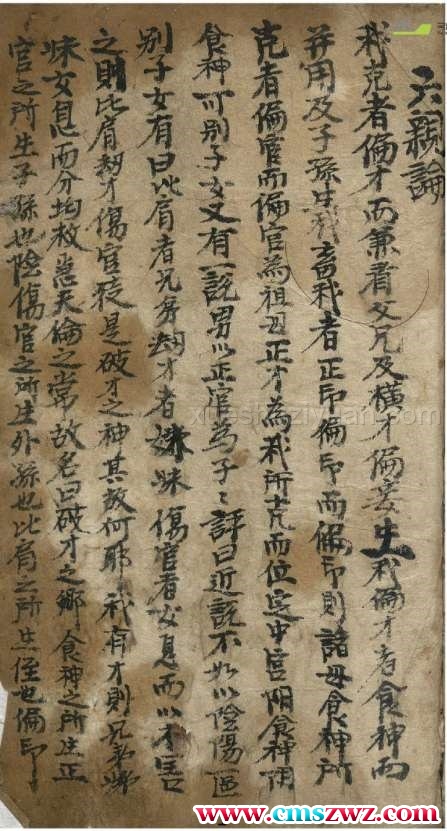 六親論
我克者偏才而兼看父兄及橫才偏妾生我偏才者食神而
并用及子孫生我畜我者正印偏印而偏印則諸母食神所
克者偏官而偏官為祖母正才為我所克而位定中宮陽食神用
食神可別子女又有一說男以正官為子〻評曰近說不如以陰傷一區
別子女有曰比肩者兄弟劫才者姊妹傷官者女息而以才言
之則比肩劫才傷官徒是破才之神其故何耶我有才則兄弟姊
妹女息而分均教是天倫之常故名曰破才之鄉食神之所生正
官之所生子孫也陰傷官之所生外孫也比肩之所生侄也偏印
www.cmszwz.com